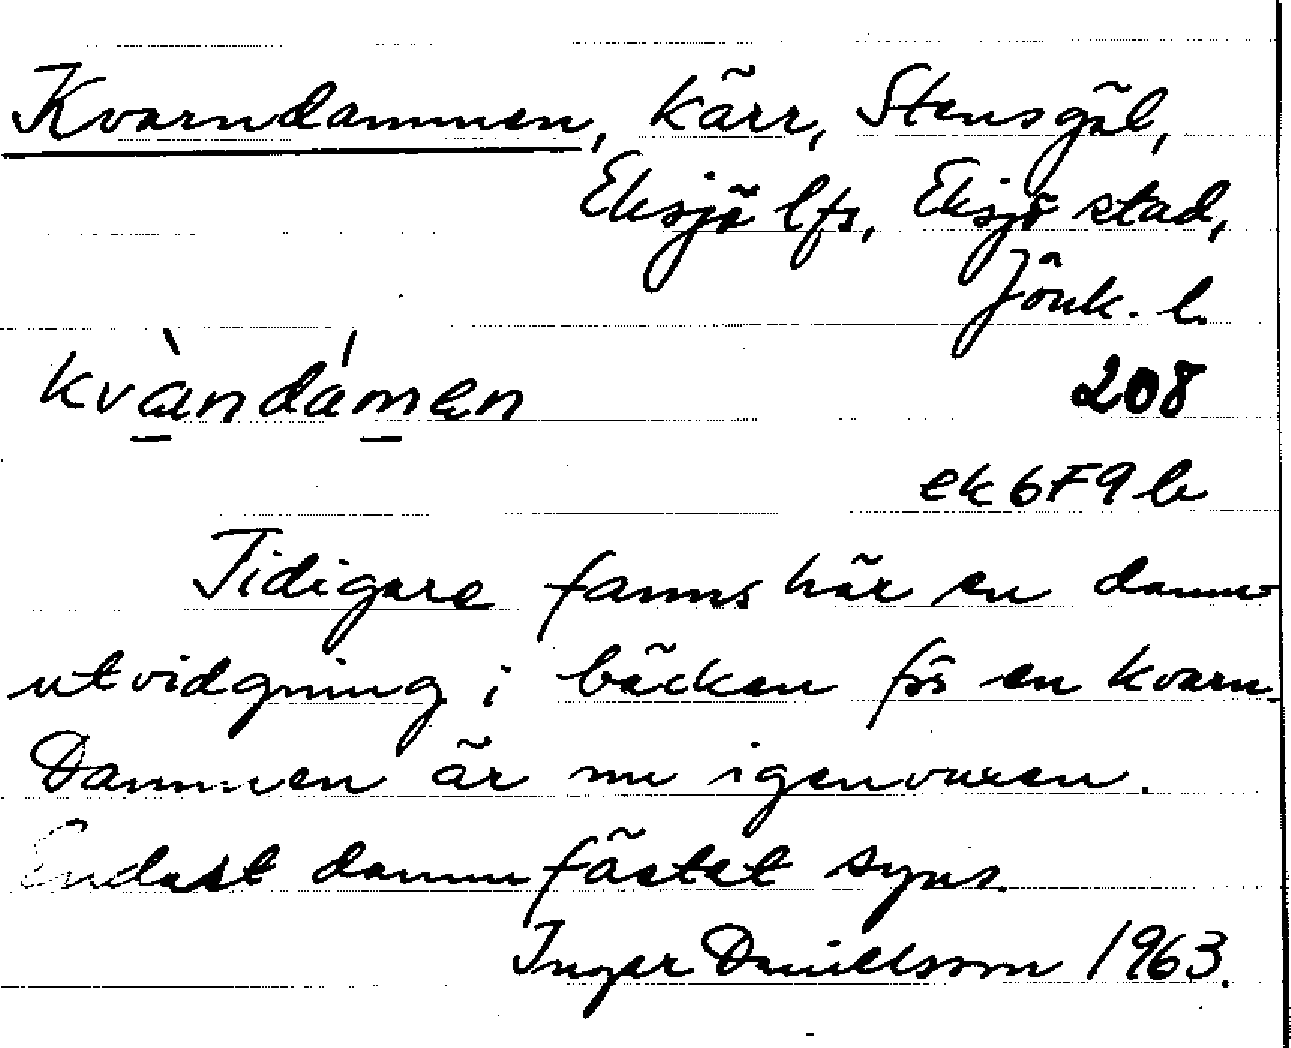 Kvarndammen, kärr, Stensgöl,
Eksjö lfs, Eksjö stad,
Jönk. l.
kvàndámen
208
ek 6F9b
Tidigare fanns här en damm-
utvidgning i bäcken för en kvarn.
Dammen är nu igenvuxen.
Endast dammfästet syns.
Inger Daniellsson 1963.